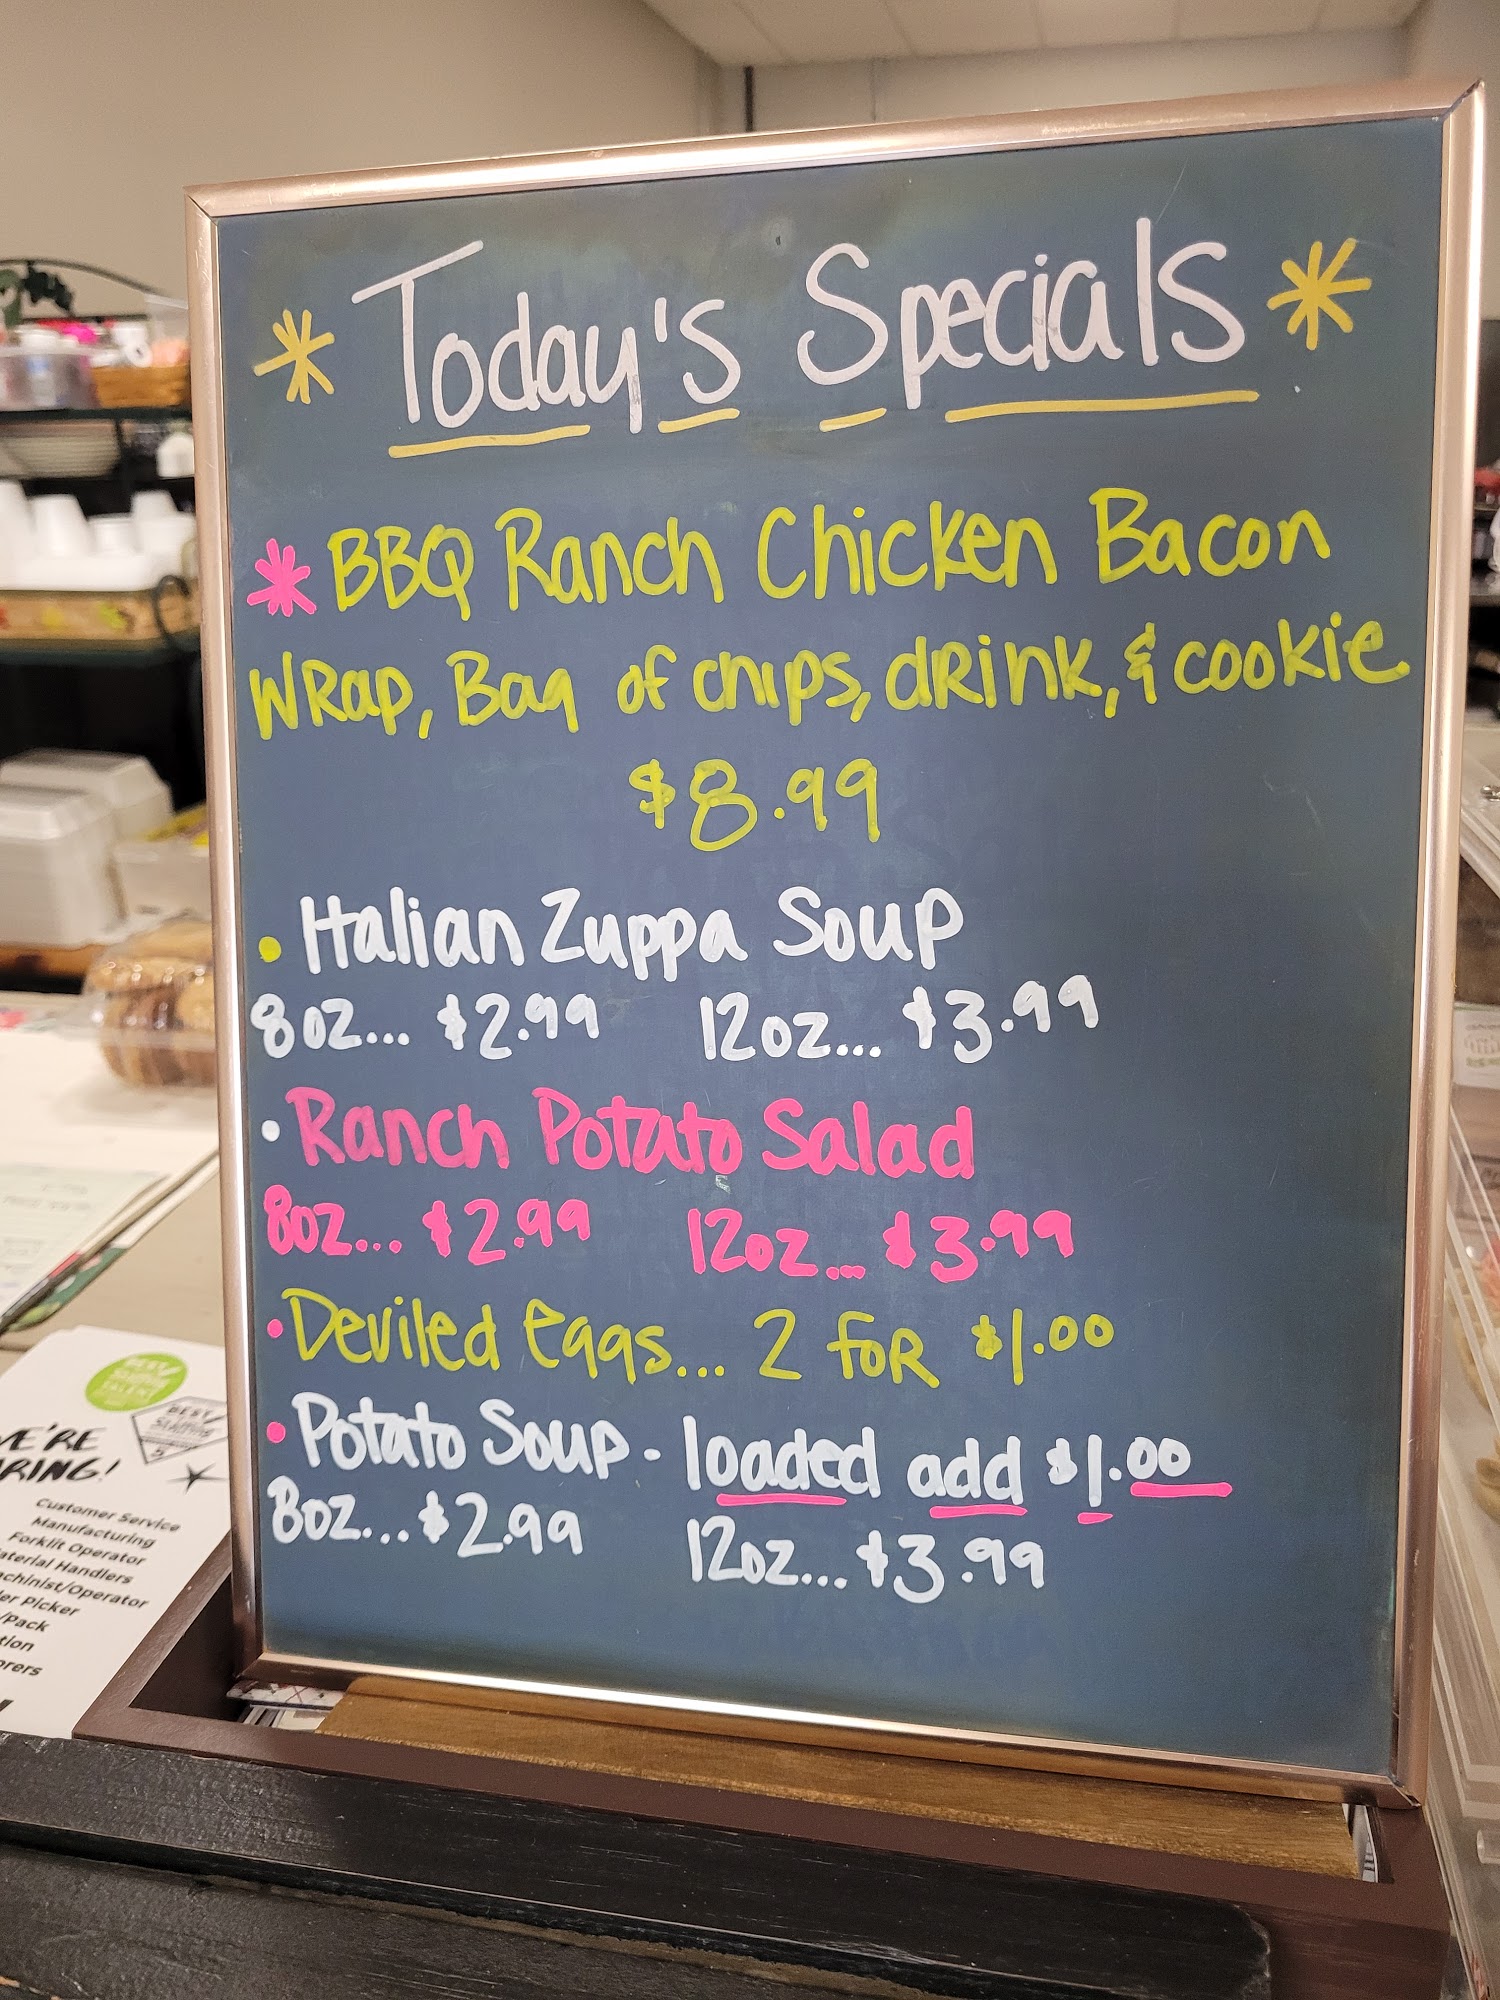 Today's Specials
BBQ Ranch Chicken Bacon
Wrap, Bag of chips, drink, & cookie
$8.99
• Italian Zuppa Soup
8oz... $2.99 12oz... $3.99
• Ranch Potato Salad
8oz... $2.99 12oz... $3.99
• Deviled Eggs... 2 for $1.00
• Potato Soup - loaded add $1.00
8oz... $2.99 12oz... $3.99
BEST
BEST
STAFFING
WE'RE
HIRING!
Customer Service
Manufacturing
Forklift Operator
Material Handlers
Machinist/Operator
Picker
/Pack